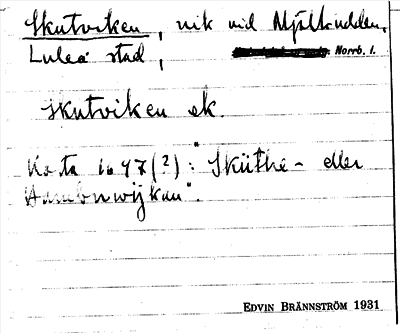 Skutviken, vik vid Mjölkudden,
Luleå stad, Norrb. l.
Skutviken ek.
Karta 1647(?): "Skūthe- eller
Hambnwijkan".
EDVIN BRÄNNSTRÖM 1931